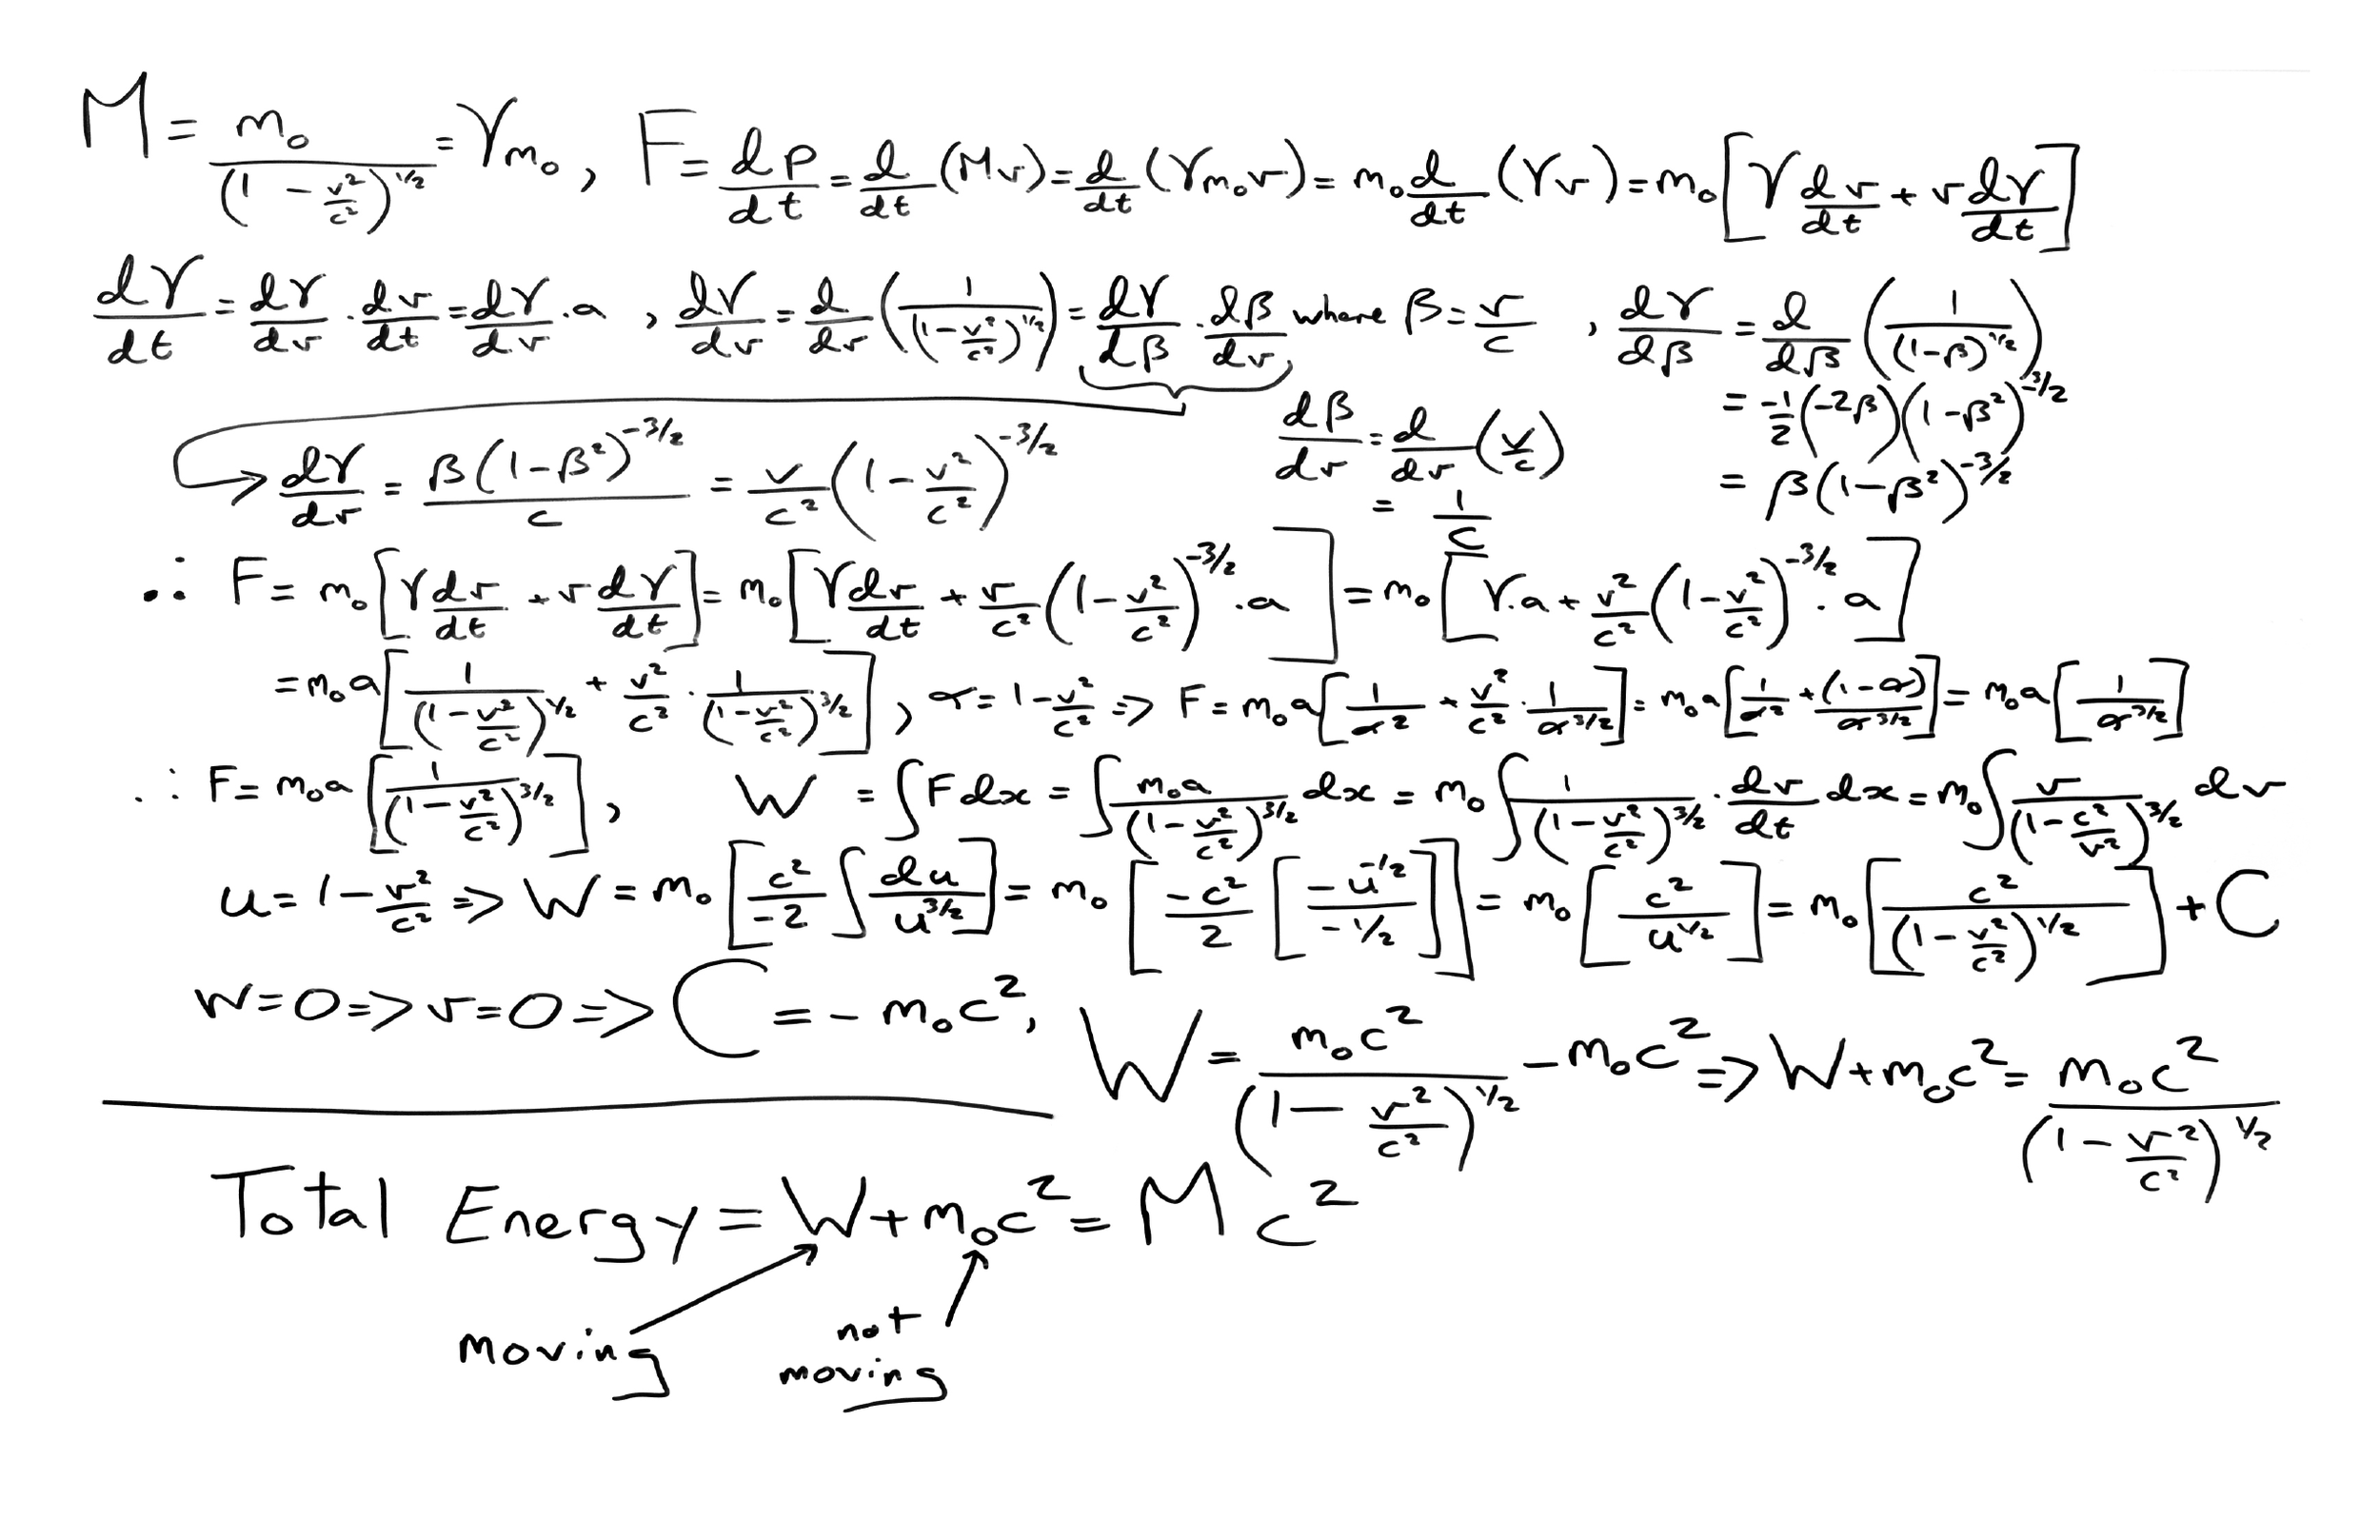 M = m₀/(1 - v²/c²)^1/2 = γm₀ , F = dp/dt = d/dt (Mv) = d/dt (γm₀v) = m₀ d/dt (γv) = m₀[γ dv/dt + v dγ/dt]
dγ/dt = dγ/dv · dv/dt = dγ/dv · a , dγ/dv = d/dv (1/(1 - v²/c²)^1/2) = dγ/dβ · dβ/dv where β = v/c , dγ/dβ = d/dβ (1/(1-β)^1/2)
= -1/2 (-2β)(1-β²)^-3/2
dβ/dv = d/dv (v/c)
= β(1-β²)^-3/2
= 1/c
→ dγ/dv = β(1-β²)^-3/2 / c = v/c² (1 - v²/c²)^-3/2
∴ F = m₀[γ dv/dt + v dγ/dt] = m₀[γ dv/dt + v/c² (1 - v²/c²)^-3/2 · a] = m₀[γ·a + v²/c² (1 - v²/c²)^-3/2 · a]
= m₀a[1/(1 - v²/c²)^1/2 + v²/c² · 1/(1 - v²/c²)^3/2] , α = 1 - v²/c² => F = m₀a[1/α² + v²/c² · 1/α^3/2] = m₀a[1/α² + (1-α)/α^3/2] = m₀a[1/α^3/2]
∴ F = m₀a[1/(1 - v²/c²)^3/2] , W = ∫F dx = ∫ m₀a/(1 - v²/c²)^3/2 dx = m₀∫ 1/(1 - v²/c²)^3/2 · dv/dt dx = m₀∫ v/(1 - c²/v²)^3/2 dv
u = 1 - v²/c² => W = m₀[c²/-2 ∫ du/u^3/2] = m₀[-c²/2 [-u^-1/2 / -1/2]] = m₀[c²/u^1/2] = m₀[c²/(1 - v²/c²)^1/2] + C
W = 0 => v = 0 => C = - m₀c² , W = m₀c²/(1 - v²/c²)^1/2 - m₀c² => W + m₀c² = m₀c²/(1 - v²/c²)^1/2
Total Energy = W + m₀c² = Mc²
moving
not
moving